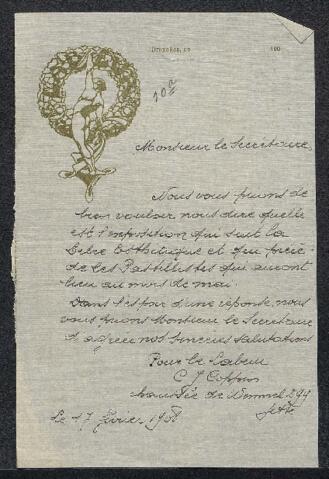 Bruxelles, le 190
10a
Monsieur le Secrétaire,
Nous vous prions de
bien vouloir nous dire quelle
est l'exposition qui suit la
Libre Esthétique et qui précè-
de les Pastellistes qui auront
lieu au mois de mai.
Dans l'espoir d'une réponse, nous
vous prions Monsieur le Secrétaire
d'agréer nos sincères salutations
Pour le Labeur
C J
Chaussée de Wemmel 299
Jette
Le 17 février 1908